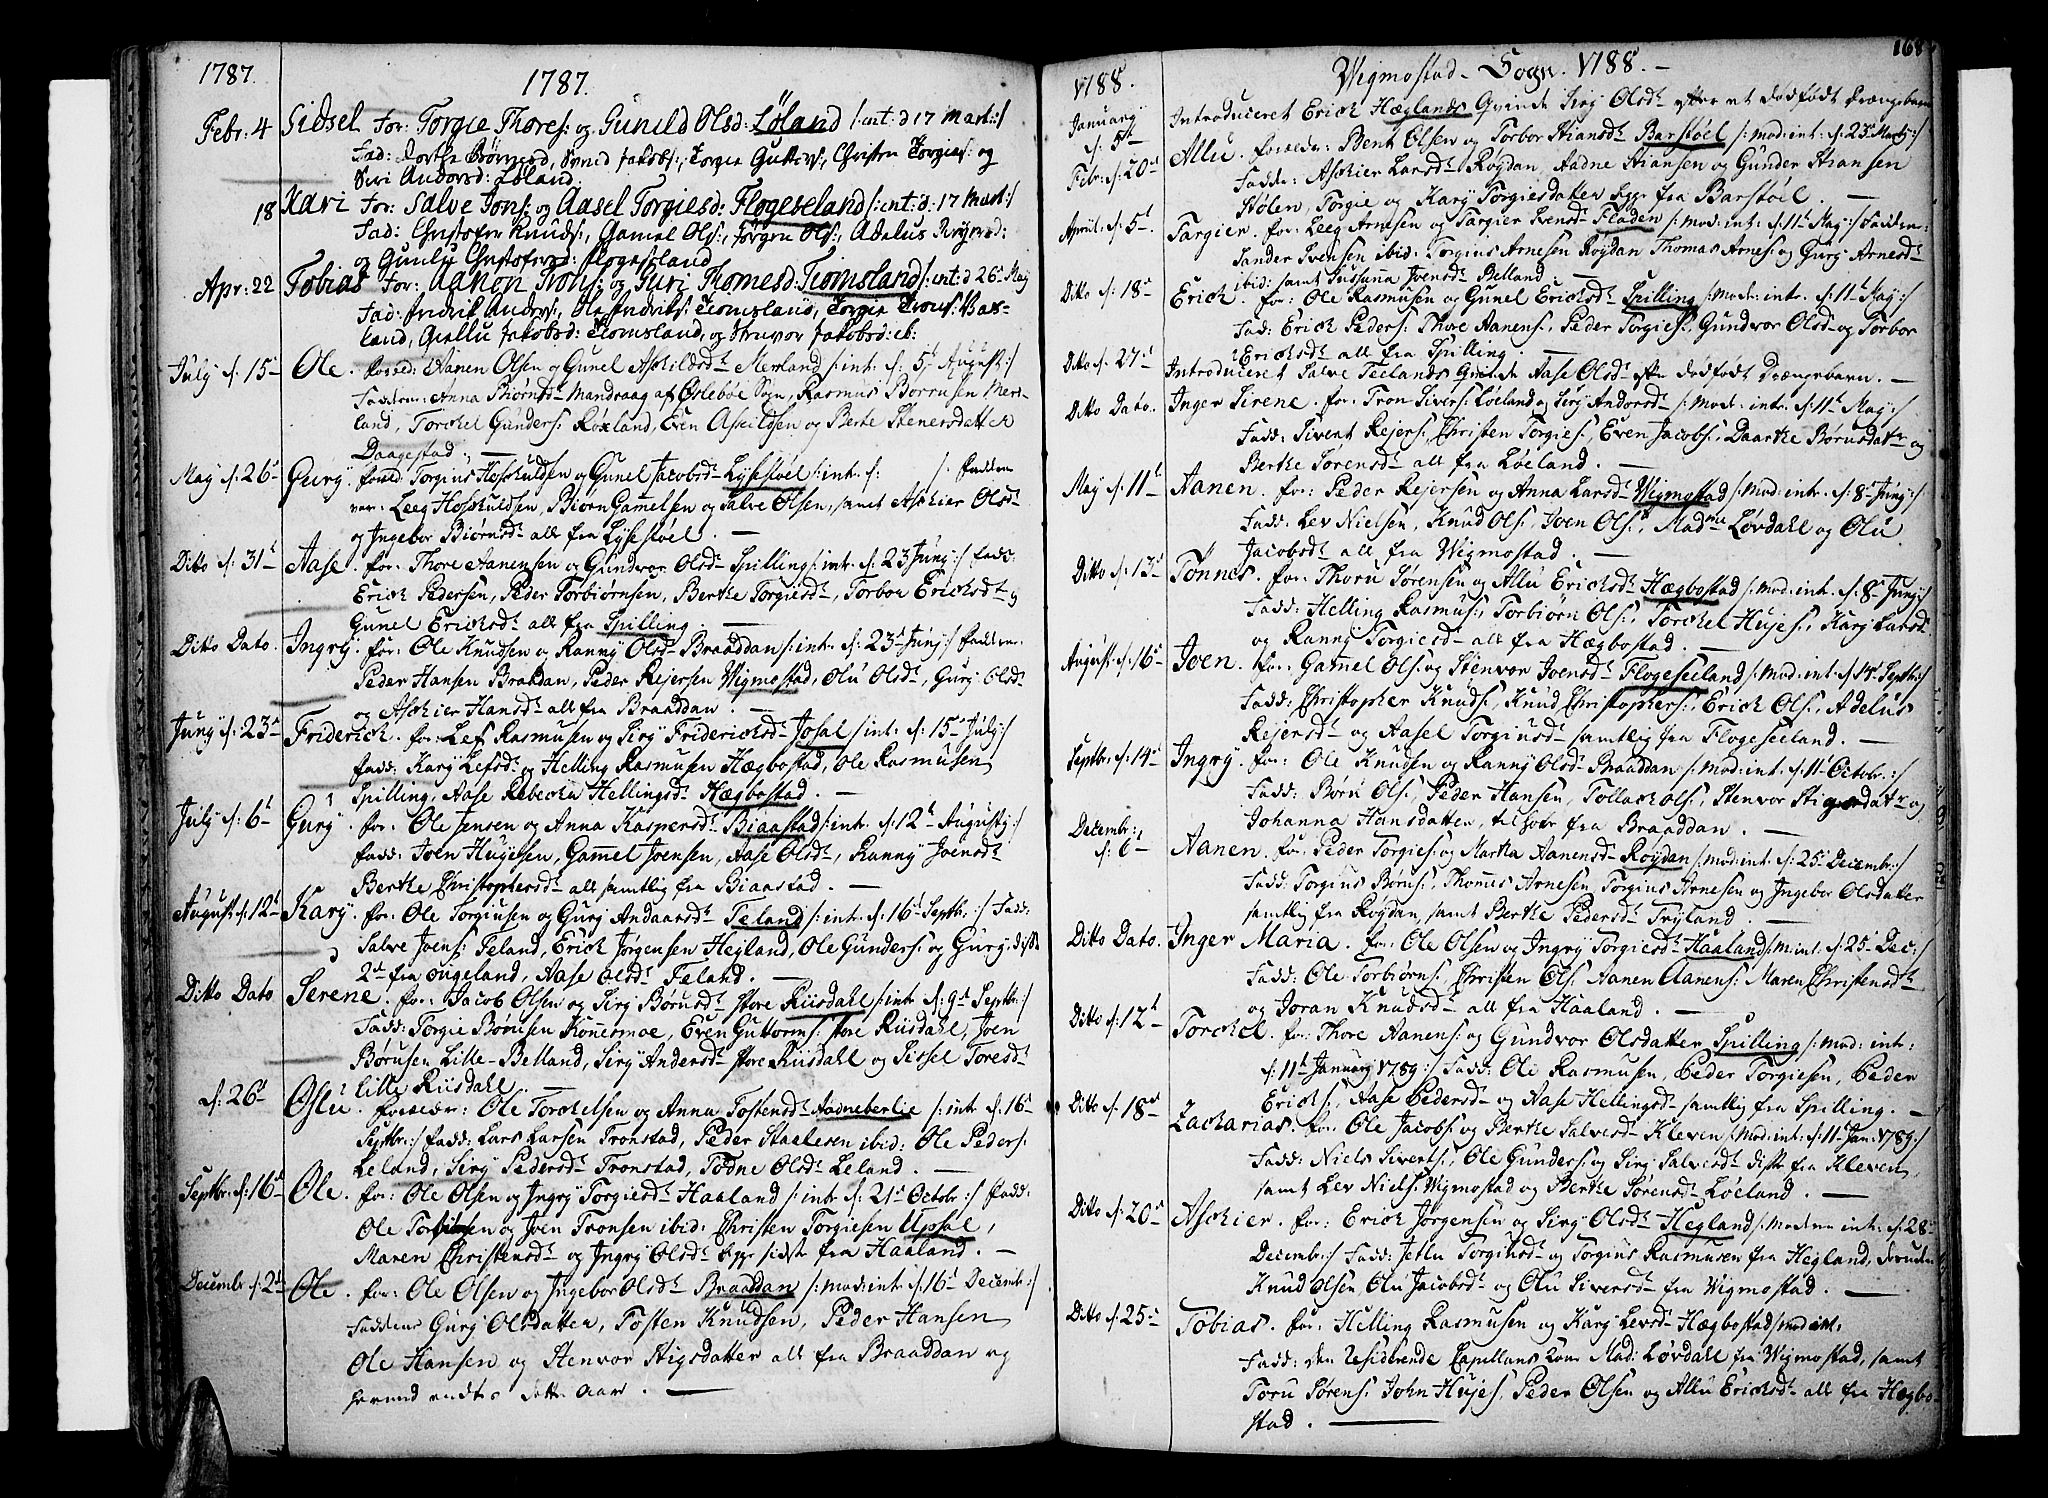 1787.
1787.
Febr: 4 Sidsel for: Torgie Thores: og Gunild Olsd: Løland /:int: d 17 Mart:/
Fad: Svend Jakobs:, Torgie Guttorms:, Christen Torgies: og
Siri Andersd: Løland.
18 Kari for: Salve Jons: og Aasel Torgiesd: Flogeveland /:int:d: 17 Mart:/
Fad: Christofer Knuds:, Gamel Ols:, Jørgen Ols:, Adelus
og Gunlu Christofersd: Flogeland
Apr: 22 Tobias for: Aanon Trons: og Guri Thomesd: Tiomsland /:int: d 26 May
Fad: Fridrik Anders:, Ole Fridriks: Tiomsland, Torgie Trons:
land, Giellu Jakobsd: Tiomsland, og Jakobsd: ib:
July d: 15 Ole. Aanen Olsen og Gunel Askildsd. Merland /:int: d: 5 August:/
Faddere: Anna Biørnsd. Mandraag af Øslebøe Sogn, Rasmus Børrusen Mer-
land, Torckel Gunders: Røxland, Even Askildsen og Berte Stenersdatter
Daagestad. —
May d: 26 Gury. Torgius Hoskuldsen og Gunel Jacobsd. Lysestøel /:int: d: :/ Faddere
var: Leeg Hoskuldsen, Biørn Gamelsen og Salve Olsen, samt Askier Olsd.
og Ingebor Biørnsd. all fra Lysestøel. —
Ditto d: 31 Aase. for: Thore Aanensen og Gundvor Olsd. Spilling /:int: d: 23 Juny:/ Fadd:
Erick Pedersen, Peder Torbiørnsen, Berthe Torgiesd., Torbor Ericksd. og
Gunel Ericksd. all fra Spilling. —
Ditto Dato. Ingry. for: Ole Knudsen og Ranny Olsd. Braaddan /:int: d: 23 Juny:/ Faddere:
Peder Hansen Braadan, Peder Rejersen Wigmostad, Olu Olsd., Gury Olsd.
og Askier Hansd. all fra Braaddan. —
Juny d: 23 Friderick. for: Lef Rasmusen og Siry Fridericksd. Josal /:int: d: 15 July:/
Fadd: Kary Lefsd. og Helling Rasmusen Hægbostad, Ole Rasmusen
Spilling, Aase Rebecka Hellingsd. Hægbostad. —
July d: 6 Gury. for: Ole Jensen og Anna Kaspersd. Biaastad /:int: d: 12 Augusty:/
Fadd: Joen Hugesen, Gamel Joensen, Aase Olsd., Ranny Joensd.
Berthe Christophersd. all samtlig fra Biaastad. —
August d: 12 Kary. for: Ole Torgiusen og Gury Andaarsd. Teland /:int: d: 16 Septbr:/ Fadd:
Salve Joens: Teland, Erick Jørgensen Hegland, Ole Gunders: og Gury, disse
2 fra Ougeland, Aase Olsd. Teland. —
Ditto Dato Serene. for: Jacob Olsen og Siry Børusd. store Riisdahl /:int: d: 9 Septbr:/
Fadd: Torgie Børusen Konesmoe, Even Guttorms: store Riisdahl, Joen
Børusen Lille-Belland, Siry Andersd. store Riisdahl og Sissel Toresd.
lille Riisdahl. —
d: 26 Oslu. forældre: Ole Torckelsen og Anna Tostensd. Aadneberlie /:int: d: 16
Septbr:/ Fadd: Lars Larsen Tronstad, Peder Staalesen ibid: Ole Peders:
Leland, Siry Pedersd. Tronstad, Todne Olsd. Leland. —
Septbr: d: 16 Ole. for: Ole Olsen og Ingry Torgiesd. Haaland /:int: d: 21 Octobr:/ Fadd:
Ole og Joen Tronsen ibid: Christen Torgiesen Upsal,
Maren Christensd. og Ingry Olsd. begge sidste fra Haaland. —
Decembr d: 2 Ole. for: Ole Olsen og Ingebor Olsd. Braaddan /:mod:int: d: 16 Decembr:/
Faddere Gury Olsdatter, Tosten Knudsen, Peder Hansen
Ole Hansen og Stenvor Stigsdatter all fra Braaddan og
hermed endtes dette Aar. —
168
1788.
Wigmostad Sogn. 1788. —
January d: 5 Introduceret Erick Hæglands Qvinde Siry Olsd. efter et dødfødt Drængebarn
Febr: d: 20 Allu. forældr: Bent Olsen og Torbor Stiansd. Barstøel /:mod:int: d: 23 Marty:/
Fadde: Askier Larsd. Røgdan, Aadne Stiansen og Gunder Stiansen
Hølen, Torgie og Kary Torgiesdatter begge fra Barstøel. —
Apriil: d: 5 Targier. for: Leeg Arnesen og Targier Svensd. Fladen /:mod:int: d: 11 May:/ Faddere:
Sander Svensen ibid: Torgius Arnesen Roydan Thomas Arnes: og Gury Arnesd.
ibid: samt Sussanna Joensd. Belland: —
Ditto d: 18 Erick. for: Ole Rasmusen og Gunel Ericksd. Spilling /:Mod: int: d: 11 May:/
Fad: Erick Peders: Thore Aanens:, Peder Torgies:, Gundvor Olsd. og Torbor
Ericksd. all fra Spilling. —
Ditto d: 27 Introduceret Salve Teelands Qvinde Aase Olsd. efter dødfødt Drængebarn. —
Ditto Dato. Inger Serene. for: Tron Sivers: Løeland og Siry Andorsd. /:Mod: int: d: 11 May:/
Fadd: Sivert Rejers:, Christen Torgies:, Even Jacobs:, Daarthe Børusdatr. og
Berthe Sørensd. all fra Løeland. —
May d: 11 Aanen. for: Peder Rejersen og Anna Larsd. Wigmostad /:Mod: int: d: 8 Juny:/
Fadd: Lev Nielsen, Knud Ols:, Joen Ols:, Madme Løvdahl og Olu
Jacobsd. all fra Wigmostad. —
Ditto d: 13 Tønnes. for: Thoru Sørensen og Allu Ericksd. Hægbostad /:Mod:int: d: 8 Juny:/
Fadd: Helling Rasmus:, Torbiørn Ols:, Torckel Hujes:, Kary Larsd.
og Ranny Torgiesd. all fra Hægbostad. —
August: d: 16 Joen. for: Gamel Ols: og Stenvor Joensd. Flogeseeland /:mod:int: d: 14 Septbr:/
Fadd: Christopher Knuds:, Knud Christophers:, Erick Ols:, Adelus
Rejersd. og Aasel Torgiusd. samtlig fra Flogeseeland. —
Septbr: d: 14 Ingry. for: Ole Knudsen og Ranny Olsd. Braaddan /:mod:int: d: 11 Octobr:/
Fadd: Børu Ols:, Peder Hansen, Tollack Ols:, Stenvor Stigsdatr. og
Johanna Hansdatter, fra Braaddan. —
Decembr: d: 6 Aanen. for: Peder Torgies: og Martha Aanensd. Roydan /:mod:int: d: 25 Decembr:/
Fadd: Torgius Børus:, Thomes Arnesen, Torgius Arnesen og Ingebor Olsdatter
samtlig fra Røgdan, samt Berthe Pedersd. Tryland. —
Ditto Dato. Inger Maria. for: Ole Olsen og Ingry Torgiesd. Haaland /:M:int: d: 25 Dec:/
Fadd: Ole Torbiørns:, Christen Ols: Aanen Aanens: Maren Christensd.
og Joran Knudsd. all fra Haaland. —
Ditto d: 12 Torckel. for: Thore Aanens: og Gundvor Olsdatter Spilling /:Mod: int:
d: 11 January 1789:/ Fadd: Ole Rasmusen, Peder Torgiesen, Peder
Ericks:, Aase Pedersd. og Aase Hellingsd. samtlig fra Spilling. —
Ditto d: 18 Zacharias. for: Ole Jacobs: og Berthe Salvesd. Kleven /:Mod:int: d: 11 Jan: 1789:/
Fadd: Niels Siverts:, Ole Gunders: og Siry Salvesd. disse fra Kleven,
samt Lev Niels: Wigmostad og Berthe Sørensd. Løeland. —
Ditto d: 20 Askier. for: Erick Jørgensen og Siry Olsd. Hegland /:Moderen int: d: 28
Decembr:/ Fadd: Jetlu Torgiusd. og Torgius Rasmusen fra Hegland,
Knud Olsen, Olu Jacobsd. og Olu Siversd. fra Wigmostad. —
Ditto d: 25 Tobias. for: Helling Rasmusen og Kary Levsd. Hægbostad /:mod:int:
Fadd: den Residerende Capellans Kone Mad: Løvdahl fra Wigmostad, samt
Toru Sørens: John Hujes:, Peder Olsen og Allu Ericksd. all fra Hægbo-
stad. —